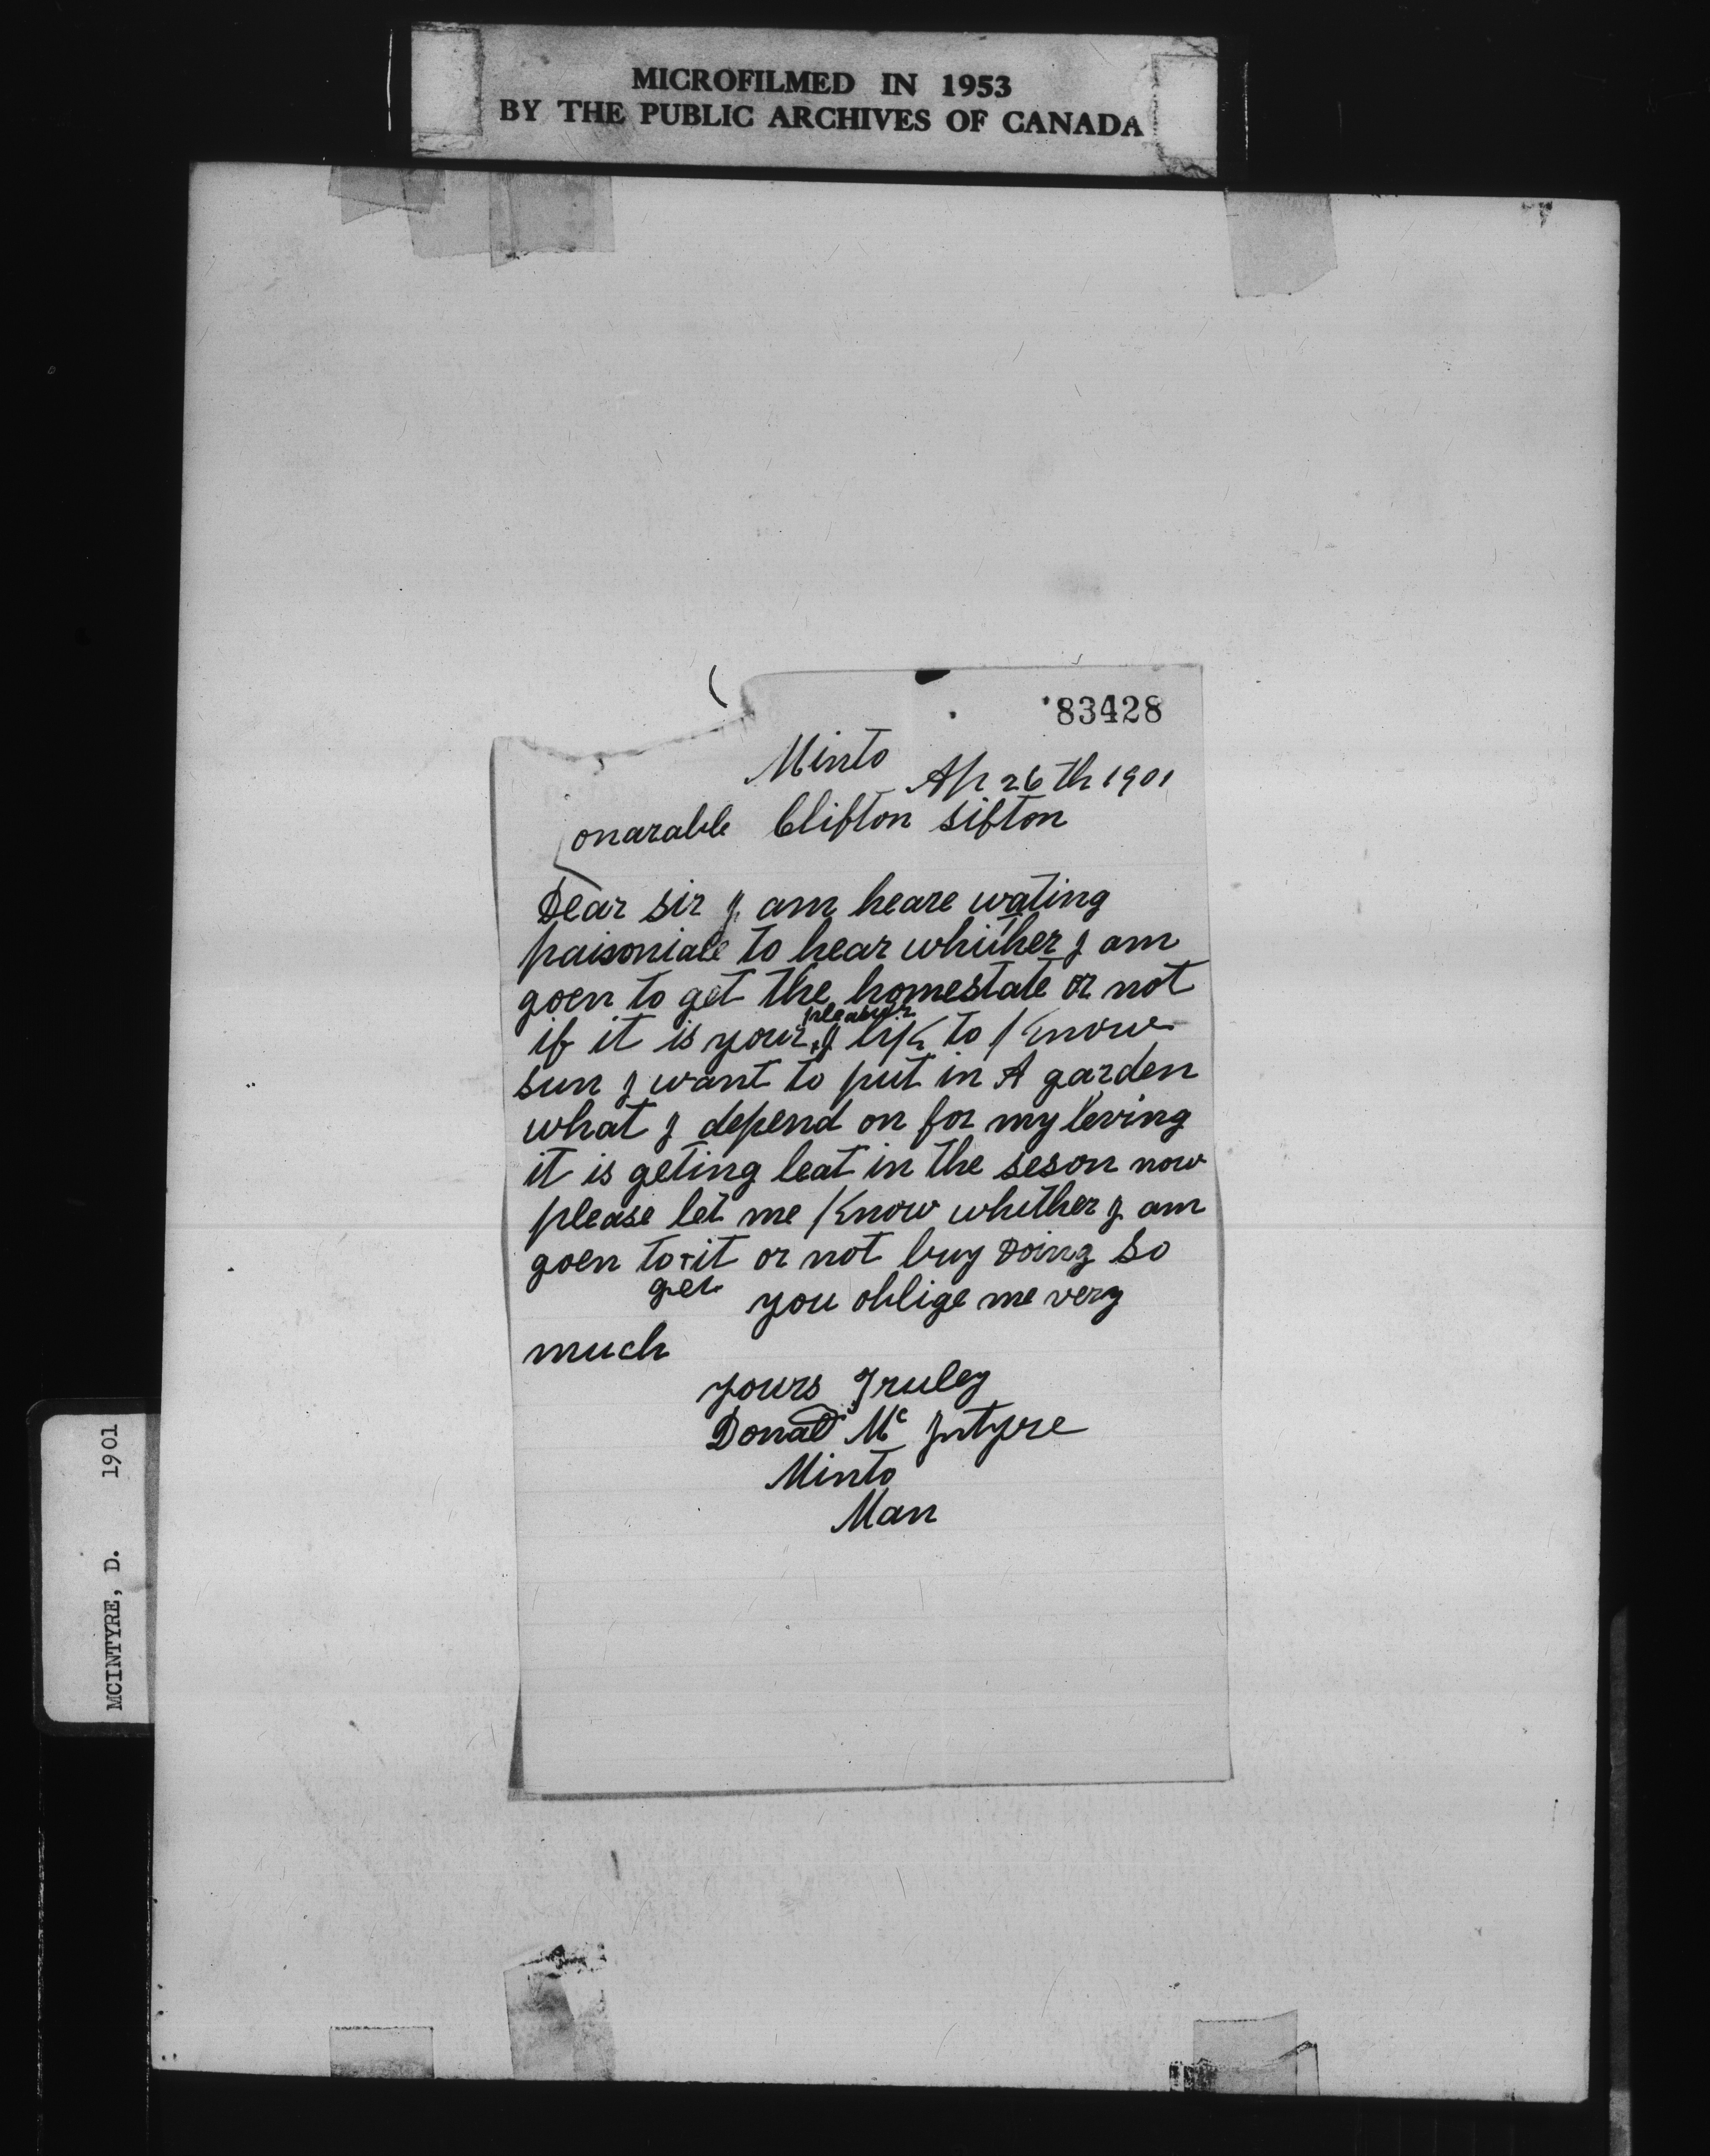 MICROFILMED IN 1953
BY THE PUBLIC ARCHIVES OF CANADA
83428
Minto Ap 26th 1901
onarable Clifton Sifton
Dear sir I am heare wating
paisoniale to hear whither I am
goen to get the homestate or not
if it is your pleasur I lik to Know
sun I want to put in A garden
what I depend on for my leving
it is geting leat in the seson now
please let me Know whither I am
goen to get it or not buy Doing so
you oblige me very
much
yours Truley
Donald Mc Intyre
Minto
Man
MCINTYRE, D. 1901